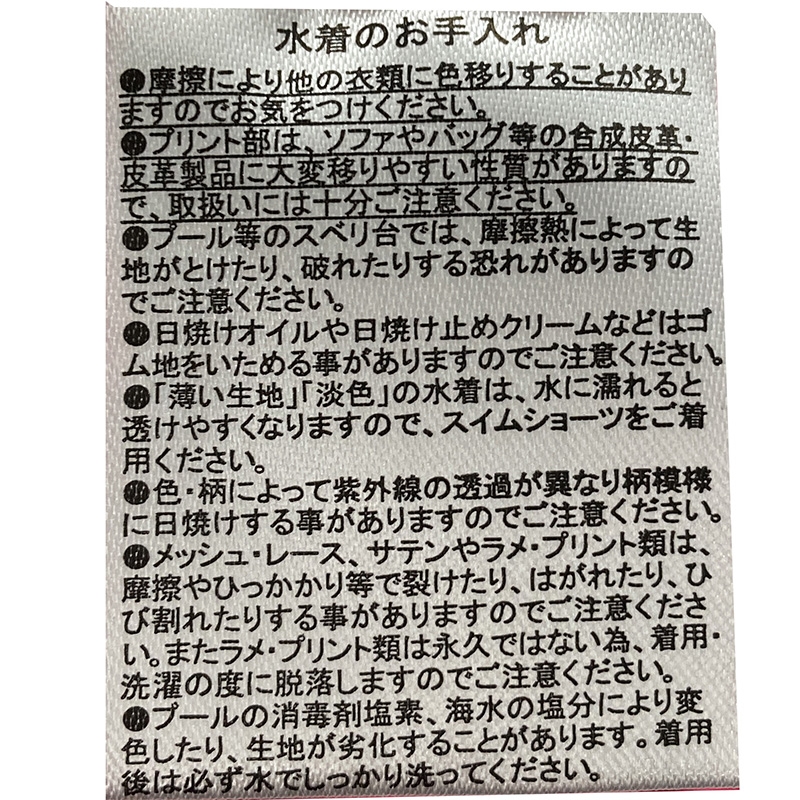 水着のお手入れ
●摩擦により他の衣類に色移りすることがあり
ますのでお気をつけください。
●プリント部は、ソファやバッグ等の合成皮革・
皮革製品に大変移りやすい性質がありますの
で、取扱いには十分ご注意ください。
●プール等のスベリ台では、摩擦熱によって生
地がとけたり、破れたりする恐れがありますの
でご注意ください。
●日焼けオイルや日焼け止めクリームなどはゴ
ム地をいためる事がありますのでご注意ください。
●「薄い生地」「淡色」の水着は、水に濡れると
透けやすくなりますので、スイムショーツをご着
用ください。
●色・柄によって紫外線の透過が異なり柄模様
に日焼けする事がありますのでご注意ください。
●メッシュ・レース、サテンやラメ・プリント類は、
摩擦やひっかかり等で裂けたり、はがれたり、ひ
び割れたりする事がありますのでご注意くださ
い。またラメ・プリント類は永久ではない為、着用・
洗濯の度に脱落しますのでご注意ください。
●プールの消毒剤塩素、海水の塩分により変
色したり、生地が劣化することがあります。着用
後は必ず水でしっかり洗ってください。